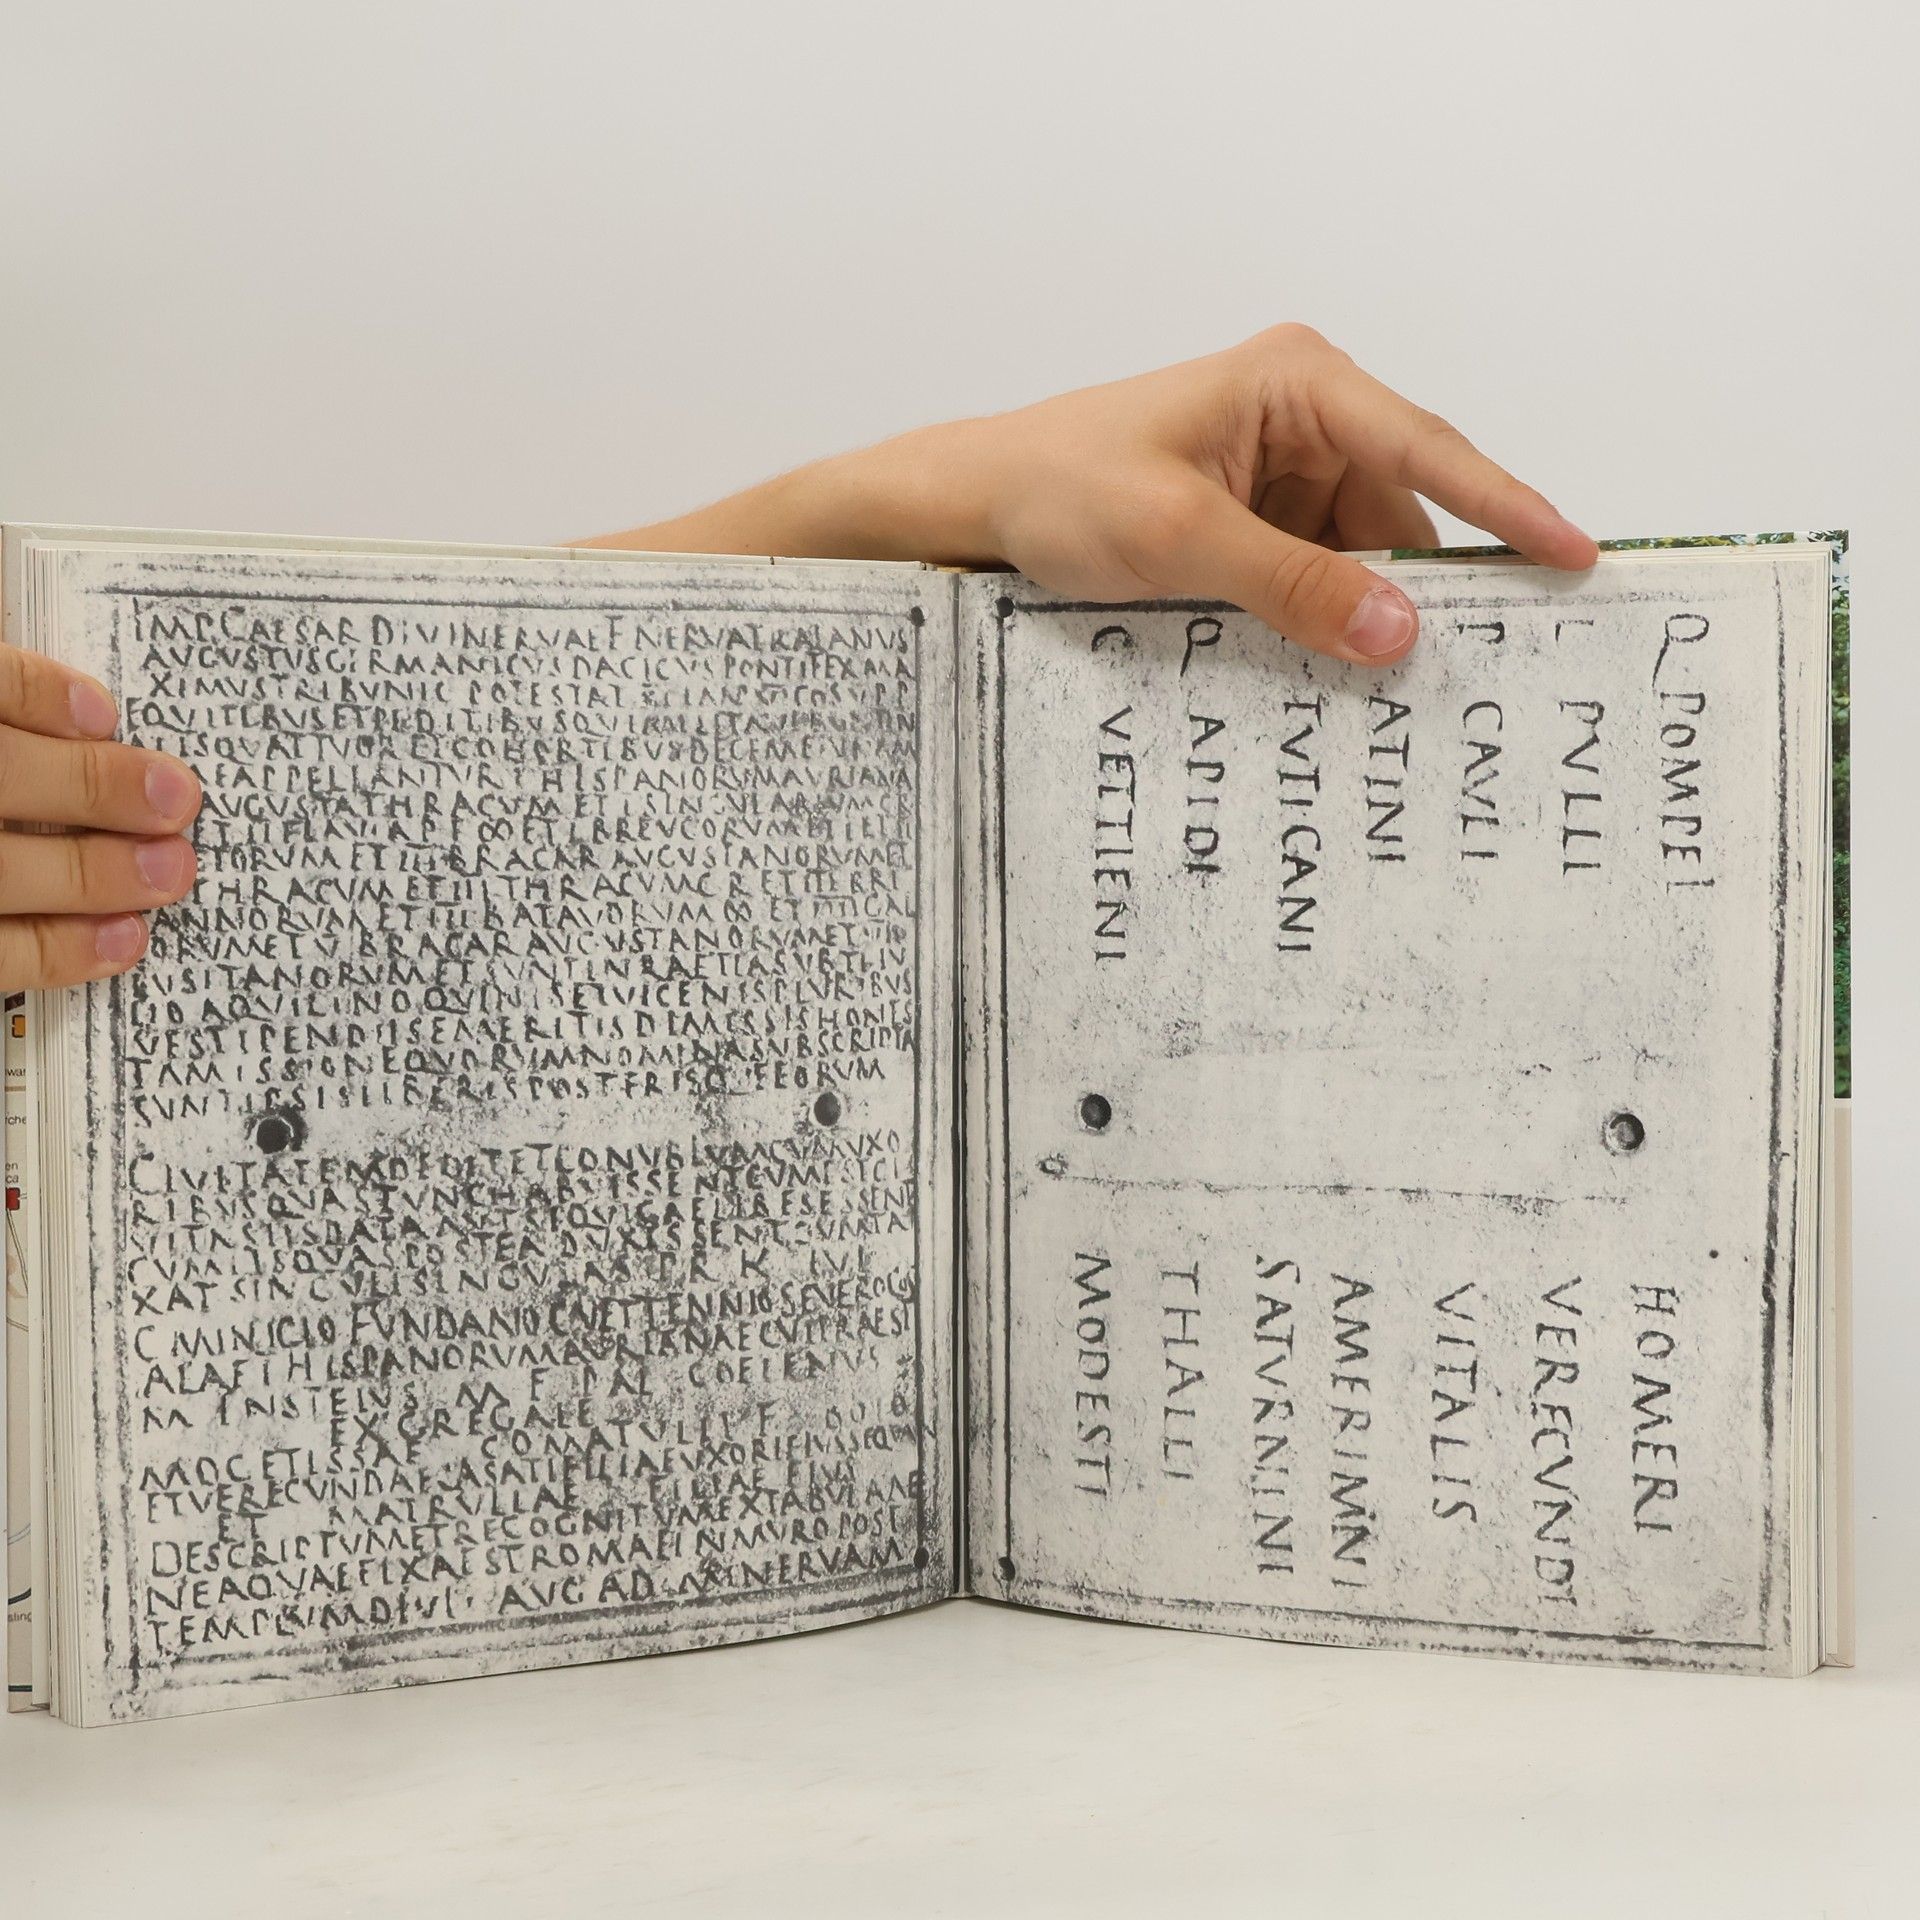 IMP CAESAR DIVI NERVAE F NERVA TRAIANVS
AVGVSTVS GERMANICVS DACICVS PONTIFEX MA
XIMVS TRIBVNIC POTESTAT COS V P P
EQVITIBVS ET PEDITIBVS QVI
ALIS QVATTVOR ET COHORTIBVS DECEM ET
APPELLANTVR I HISPANORVM AVRIANA
AVGVSTA THRACVM ET I SINGVLARIVM C R
ET II FLAVIA P F ∞ ET I BREVCORVM ET
ETORVM ET III BRACARAVGVSTANORVM ET
THRACVM ET III THRACVM C R ET III BRI
ANNORVM ET III BATAVORVM ∞ ET IIII GAL
ORVM ET V BRACARAVGVSTANORVM ET
LVSITANORVM ET SVNT IN RAETIA SVB TI IV
LIO AQVILINO QVINIS ET VICENIS PLVRIBVS
VE STIPENDIIS EMERITIS DIMISSIS HONES
TA MISSIONE QVORVM NOMINA SVBSCRIPTA
SVNT IPSIS LIBERIS POSTERISQVE EORVM
CIVITATEM DEDIT ET CONVBIVM CVM VXO
RIBVS QVAS TVNC HABVISSENT CVM EST CI
VITAS IIS DATA AVT SI QVI CAELIBES ESSENT
CVM IIS QVAS POSTEA DVXISSENT DVMTA
XAT SINGVLI SINGVLAS PR K IVL
C MINICIO FVNDANO C VETTENNIO SEVERO COS
ALAE I HISPANORVM AVRIANAE CVI PRAEST
M INSTEIVS M F PAL COELENVS
EX GREGALE
MOGETISSAE COMATVLLI F BOIO
ET VERECVNDAE CASATI FILIAE VXORI EIVS SEQVAN
ET MATRVLLAE FILIAE EIVS
DESCRIPTVM ET RECOGNITVM EX TABVLA AE
NEA QVAE FIXA EST ROMAE IN MVRO POST
TEMPLVM DIVI AVG AD MINERVAM
Q POMPEI HOMERI
L PVLLI VERECVNDI
P CAVLI VITALIS
ATINI AMERIMNI
TVTICANI SATVRNINI
Q APIDI THALLI
C VETTIENI MODESTI